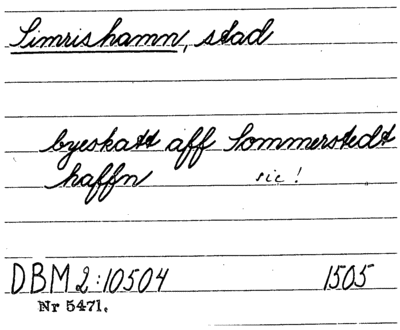 Simrishamn, stad
byeskatt aff Sommerstedt
haffn sic!
DBM 2:10504 1505
Nr 5471.